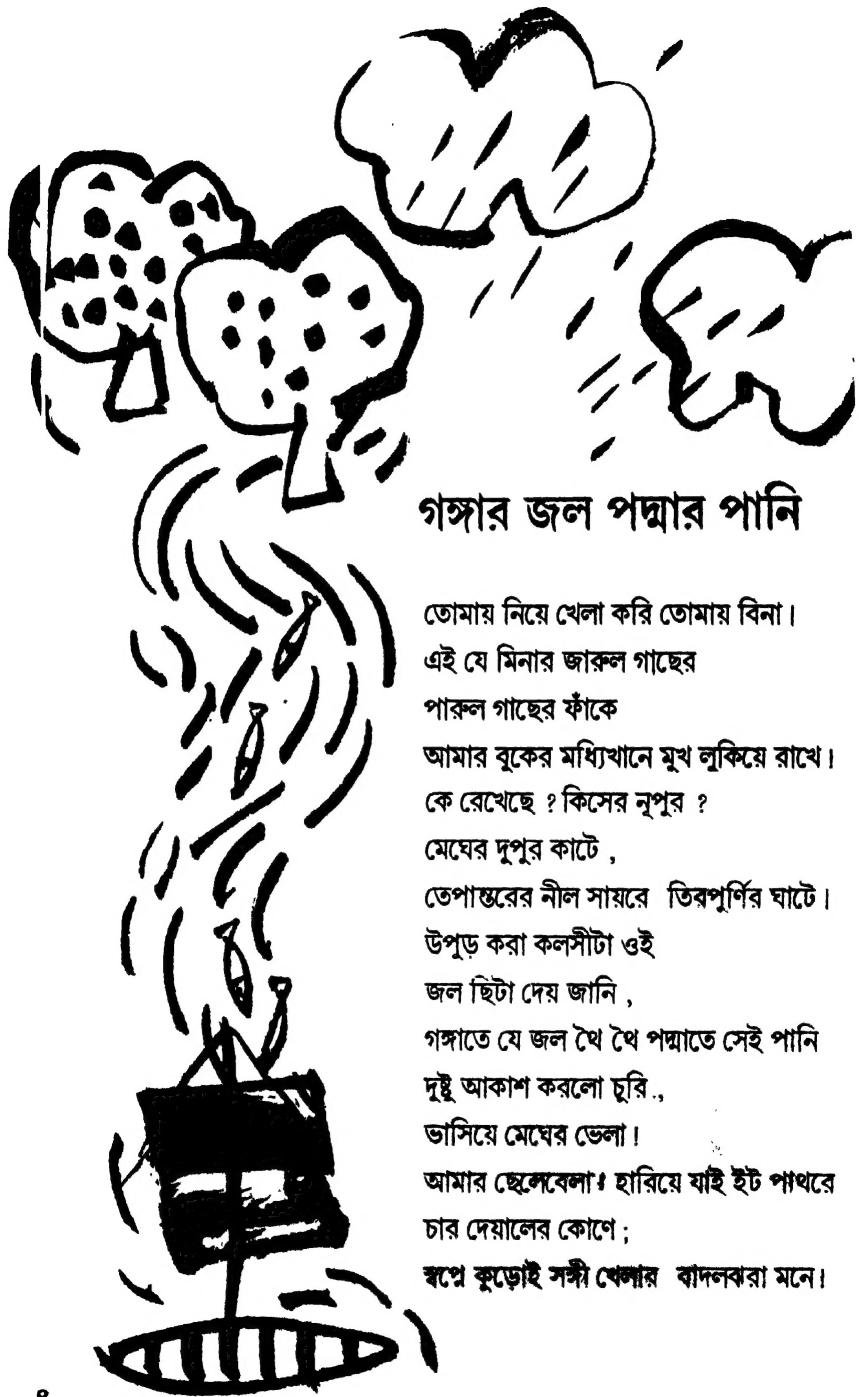 গঙ্গার জল পদ্মার পানি
তোমায় নিয়ে খেলা করি তোমায় বিনা।
এই যে মিনার জারুল গাছের
পারুল গাছের ফাঁকে
আমার বুকের মধ্যিখানে মুখ লুকিয়ে রাখে।
কে রেখেছে ? কিসের নূপুর ?
মেঘের দুপুর কাটে ,
তেপান্তরের নীল সায়রে তিরপুর্ণির ঘাটে।
উপুড় করা কলসীটা ওই
জল ছিটা দেয় জানি ,
গঙ্গাতে যে জল থৈ থৈ পদ্মাতে সেই পানি
দুষ্টু আকাশ করলো চুরি .,
ভাসিয়ে মেঘের ভেলা!
আমার ছেলেবেলা! হারিয়ে যাই ইট পাথরে
চার দেয়ালের কোণে ;
স্বপ্নে কুড়োই সঙ্গী খেলার বাদলঝরা মনে।